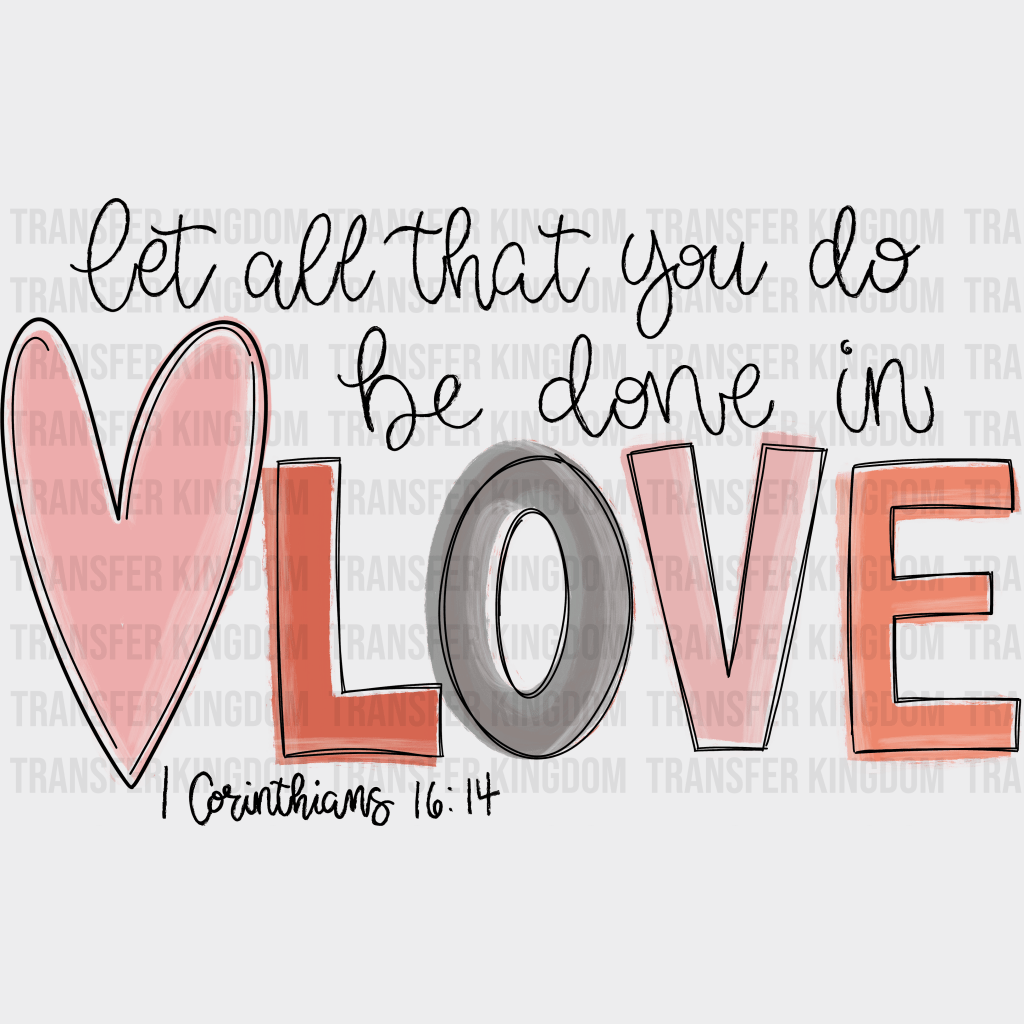 TRANSFER KINGDOM TRANSFER KINGDOM TRANSFER KINGDOM TRA
let all that you do
TRANSFER KINGDOM TRANSFER KINGDOM TRANSFER KINGDOM TRA
be done in
TRANSFER KINGDOM TRANSFER KINGDOM TRANSFER KINGDOM TRA
TRANSFER KINGDOM TRANSFER KINGDOM TRANSFER KINGDOM TRA
TRANSFER KINGDOM TRANSFER KINGDOM TRANSFER KINGDOM TRA
LOVE
TRANSFER KINGDOM TRANSFER KINGDOM TRANSFER KINGDOM TRA
TRANSFER KINGDOM TRANSFER KINGDOM TRANSFER KINGDOM TRA
TRANSFER KINGDOM TRANSFER KINGDOM TRANSFER KINGDOM TRA
TRANSFER KINGDOM TRANSFER KINGDOM TRANSFER KINGDOM TRA
1 Corinthians 16:14